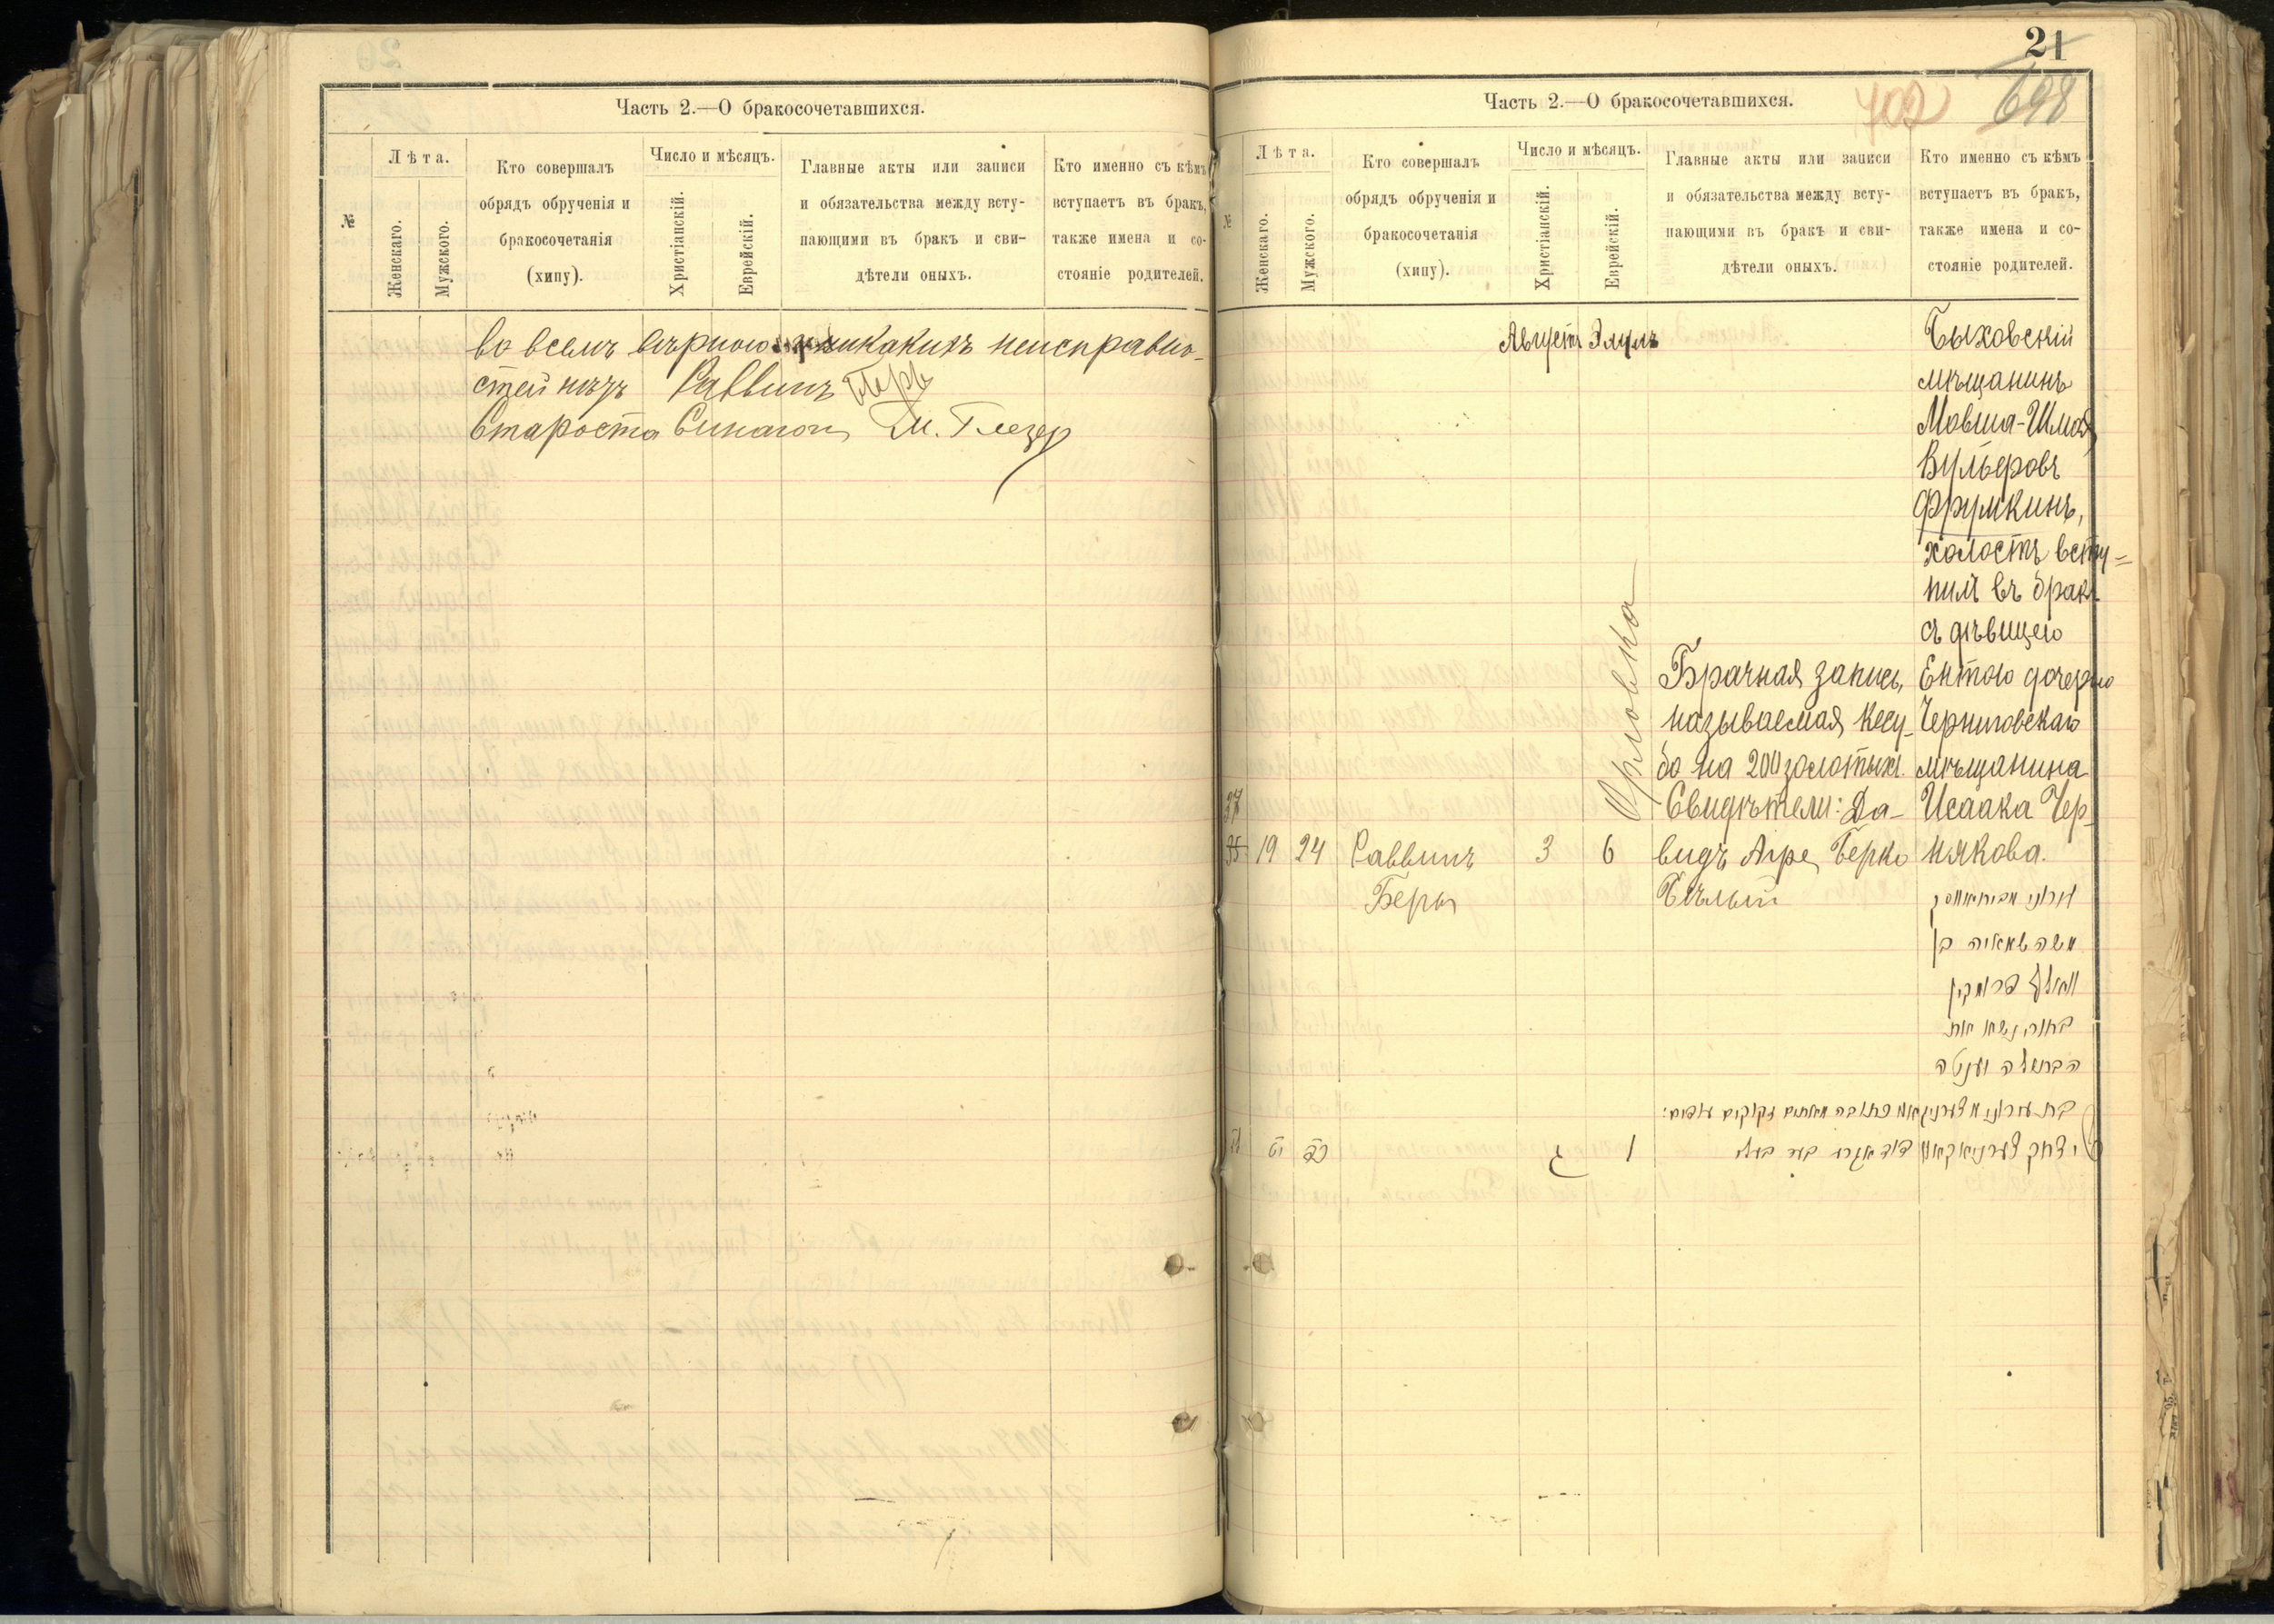 Часть 2.—О бракосочетавшихся.
№
Лѣта.
Женскаго.
Мужскаго.
Кто совершалъ
обрядъ обрученія и
бракосочетанія
(хипу).
Число и мѣсяцъ.
Христіанскій.
Еврейскій.
Главные акты или записи
и обязательства между всту-
пающими въ бракъ и сви-
дѣтели оныхъ.
Кто именно съ кѣмъ
вступаетъ въ бракъ,
также имена и со-
стояніе родителей.
во всемъ вѣрною никакихъ неисправно-
стей нѣтъ Раввинъ
Староста Синагоги М. Глезер
21
698
702
Часть 2.—О бракосочетавшихся.
№
Лѣта.
Женскаго.
Мужскаго.
Кто совершалъ
обрядъ обрученія и
бракосочетанія
(хипу).
Число и мѣсяцъ.
Христіанскій.
Еврейскій.
Главные акты или записи
и обязательства между всту-
пающими въ бракъ и сви-
дѣтели оныхъ.
Кто именно съ кѣмъ
вступаетъ въ бракъ,
также имена и со-
стояніе родителей.
37
35
19
24
Раввинъ
Беры
Августъ
3
Элулъ
6
Орловка
Брачная запись,
называемая кесу-
бо на 200 золотыхъ.
Свидѣтели: Да-
видъ Агре, Берко
Бѣлый
Быховскій
мѣщанинъ
Мовша-Шмая
Вульфовъ
Фрумкинъ,
холостъ всту=
пилъ въ бракъ
съ дѣвицею
Ентою дочерью
Черниговскаго
мѣщанина
Исаака Чер-
някова.
משה שמאיה בן
וואלף פרומקין
בחור נשא את
הבתולה יענטה
יצחק טערניאקאוו
ו
ג
כד
יט